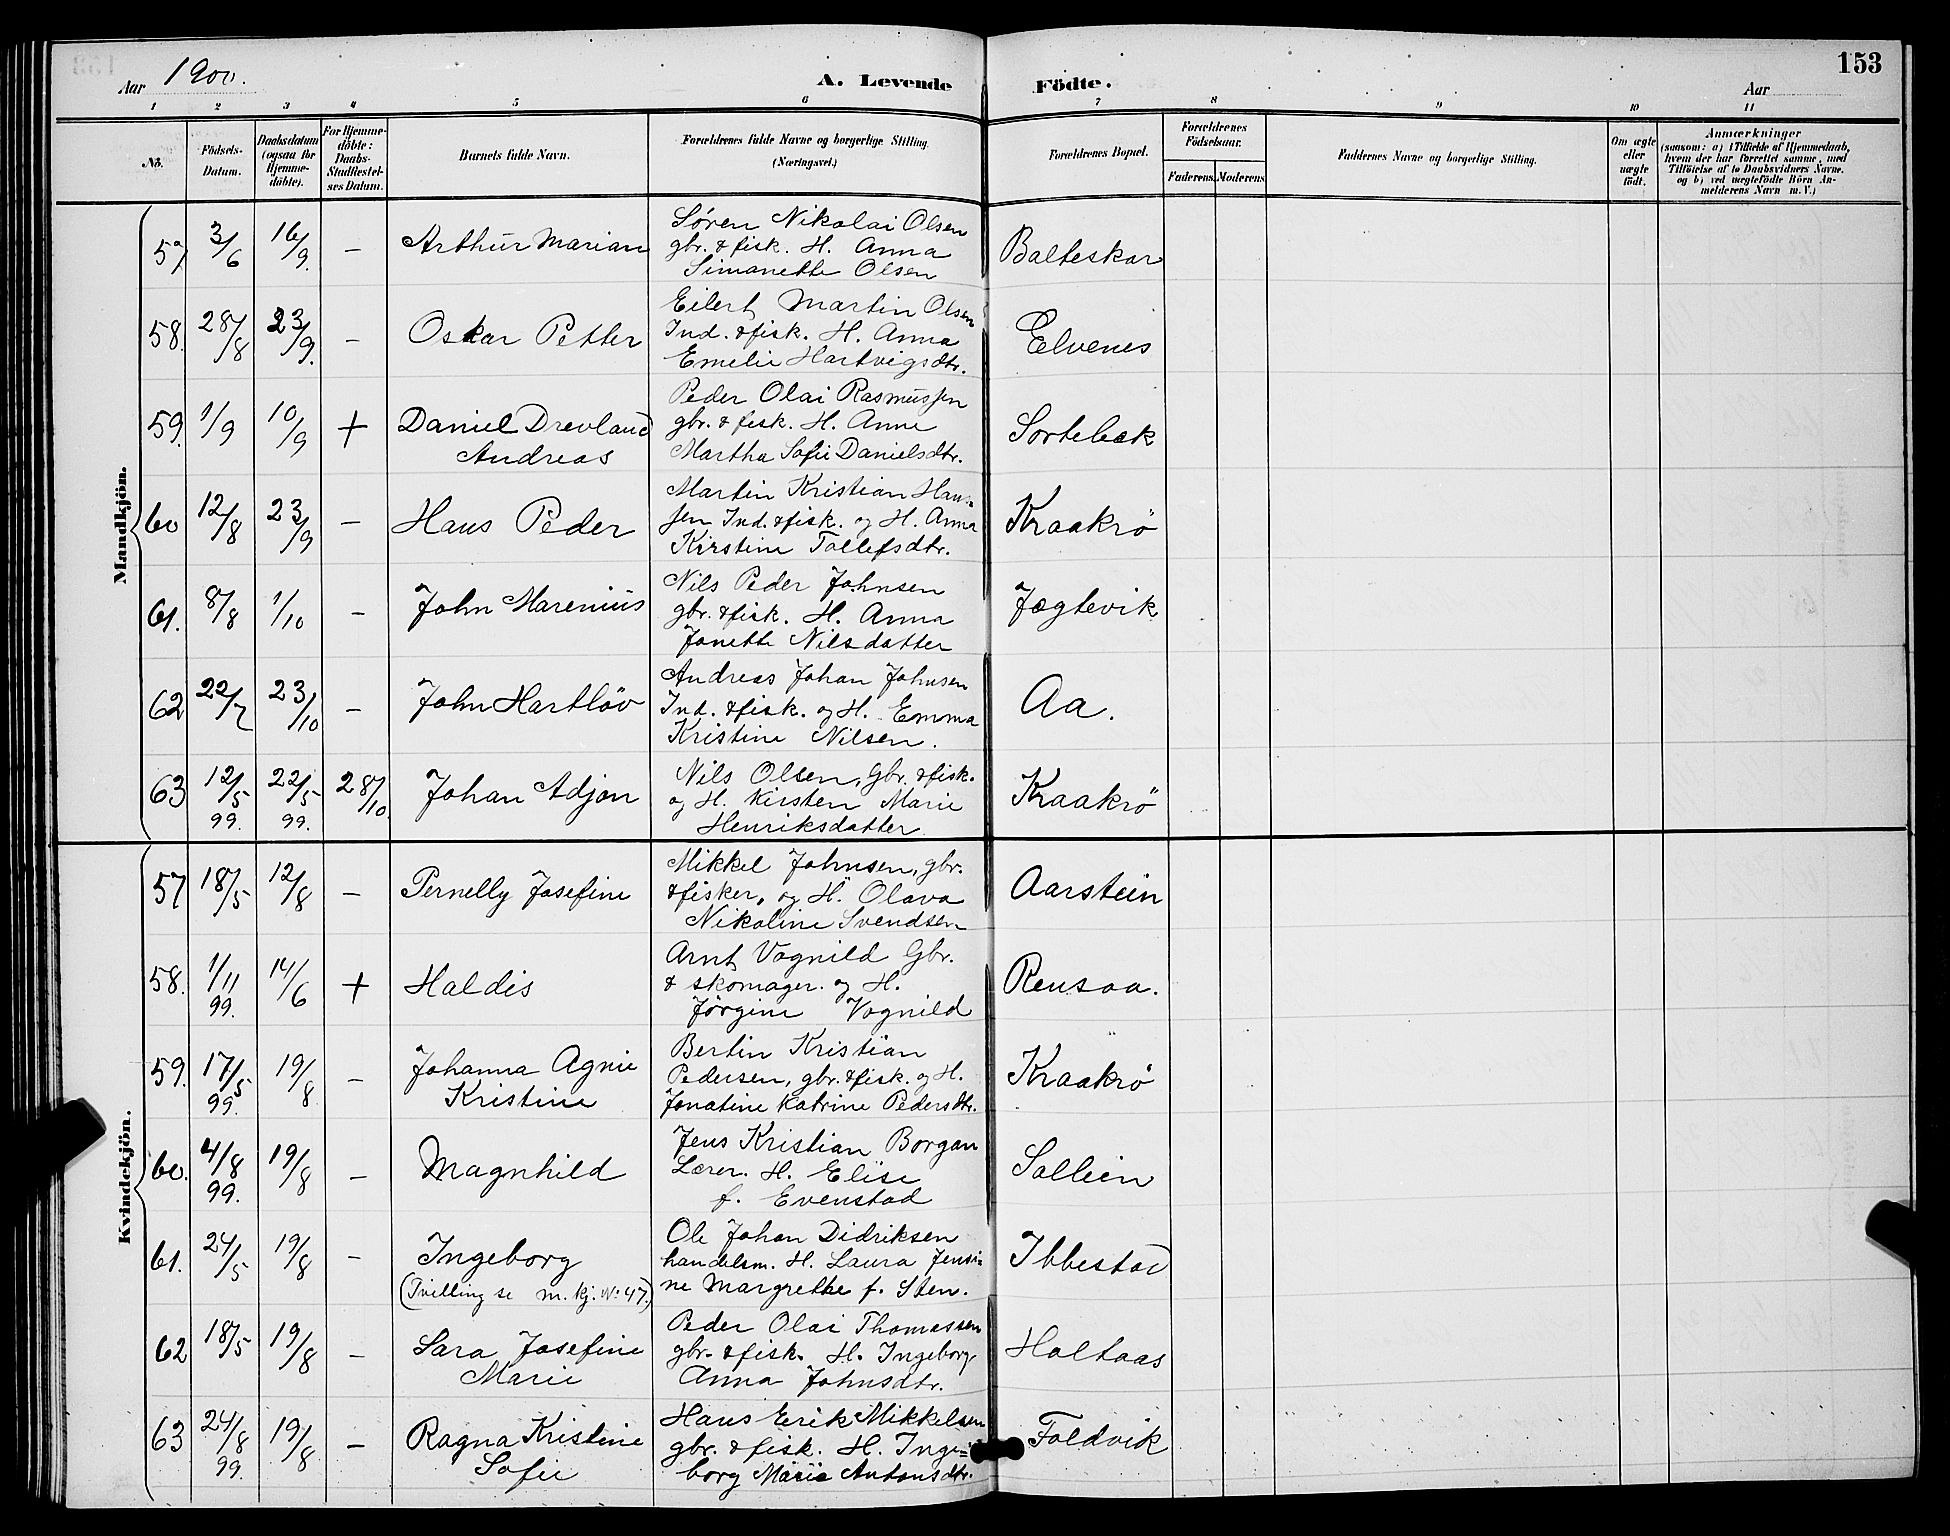 Aar 1900.
A. Levende Födte.
153
Aar
1 2 3 4 5 6 7 8 9 10 11
No.
Födsels-Datum.
Daabsdatum (ogsaa for Hjemme-döbte).
For Hjemme-döbte: Daabs-Stadfæstel-ses Datum.
Barnets fulde Navn.
Forældrenes fulde Navne og borgerlige Stilling. (Næringsvei.)
Forældrenes Bopæl.
Forældrenes Födselsaar.
Faderens. Moderens.
Faddernes Navne og borgerlige Stilling.
Om ægte eller uægte födt.
Anmærkninger
(saasom: a) i Tilfælde af Hjemmedaab,
hvem der har forrettet samme, med
Tilföielse af to Daabsvidners Navne.
og b) ved uægtefödte Börn An-
melderens Navn m. V.)
Mandkjön.
57 3/6 16/9. – Arthur Marian Søren Nikolai Olsen
gbr. & fisk. H. Anna
Simanette Olsen
Balteskar
58. 28/8 23/9. – Oskar Petter Eilert Martin Olsen
Ind. & fisk. H. Anna
Emelie Hartvigsdtr.
Elvenes
59. 1/9 10/9 + Daniel Drevland
Andreas
Peder Olai Rasmussen
gbr. & fisk. H. Anne
Martha Sofie Danielsdtr.
Sortebek
60 12/8 23/9 – Hans Peder Martin Kristian Han-
sen Ind. & fisk. og H. Anna
Kirstine Tollefsdtr.
Kraakrö
61. 8/8 1/10 – John Marenius Nils Peder Johnsen
gbr. & fisk. H. Anna
Janette Nilsdatter
Jægtevik
62 22/7 23/10 – John Hartløv Andreas Johan Johnsen
Ind. & fisk. og H. Emma
Kristine Nilsen.
Aa.
63 12/5 99. 22/5 99. 28/10. Johan Adjon Nils Olsen, Gbr. & fisk.
og H. Kirsten Marie
Henriksdatter
Kraakrö
Kvindekjön.
57 18/5 12/8 – Pernelly Josefine Mikkel Johnsen, gbr.
& fisker, og H. Olava
Nikoline Svendsen
Aarstein
58. 1/11 99. 14/6 + Haldis Arnt Vognild Gbr.
& skomager. og H.
Jørgine Vognild
Rensaa.
59. 17/5 99. 19/8 – Johanna Agnie
Kristine
Bertin Kristian
Pedersen, gbr. & fisk. og H.
Jonatine Katrine Pedersdtr.
Kraakrö
60. 4/8 99. 19/8 – Magnhild Jens Kristian Borgan
Lærer. H. Elise
f. Evenstad
Sollien
61. 24/5 19/8 – Ingeborg
(Tvilling se m. kj. No 47.)
Ole Johan Didriksen
handelsm. H. Laura Jensi-
ne Margrethe f. Sten.
Ibbestad
62 18/5 19/8 – Sara Josefine
Marie
Peder Olai Thomassen
gbr. & fisk. H. Ingeborg
Anna Johnsdtr.
Holtaas
63 24/8 99. 19/8 – Ragna Kristine
Sofie
Hans Erik Mikkelsen
gbr. & fisk. H. Inge-
borg Marie Antonsdtr.
Foldvik